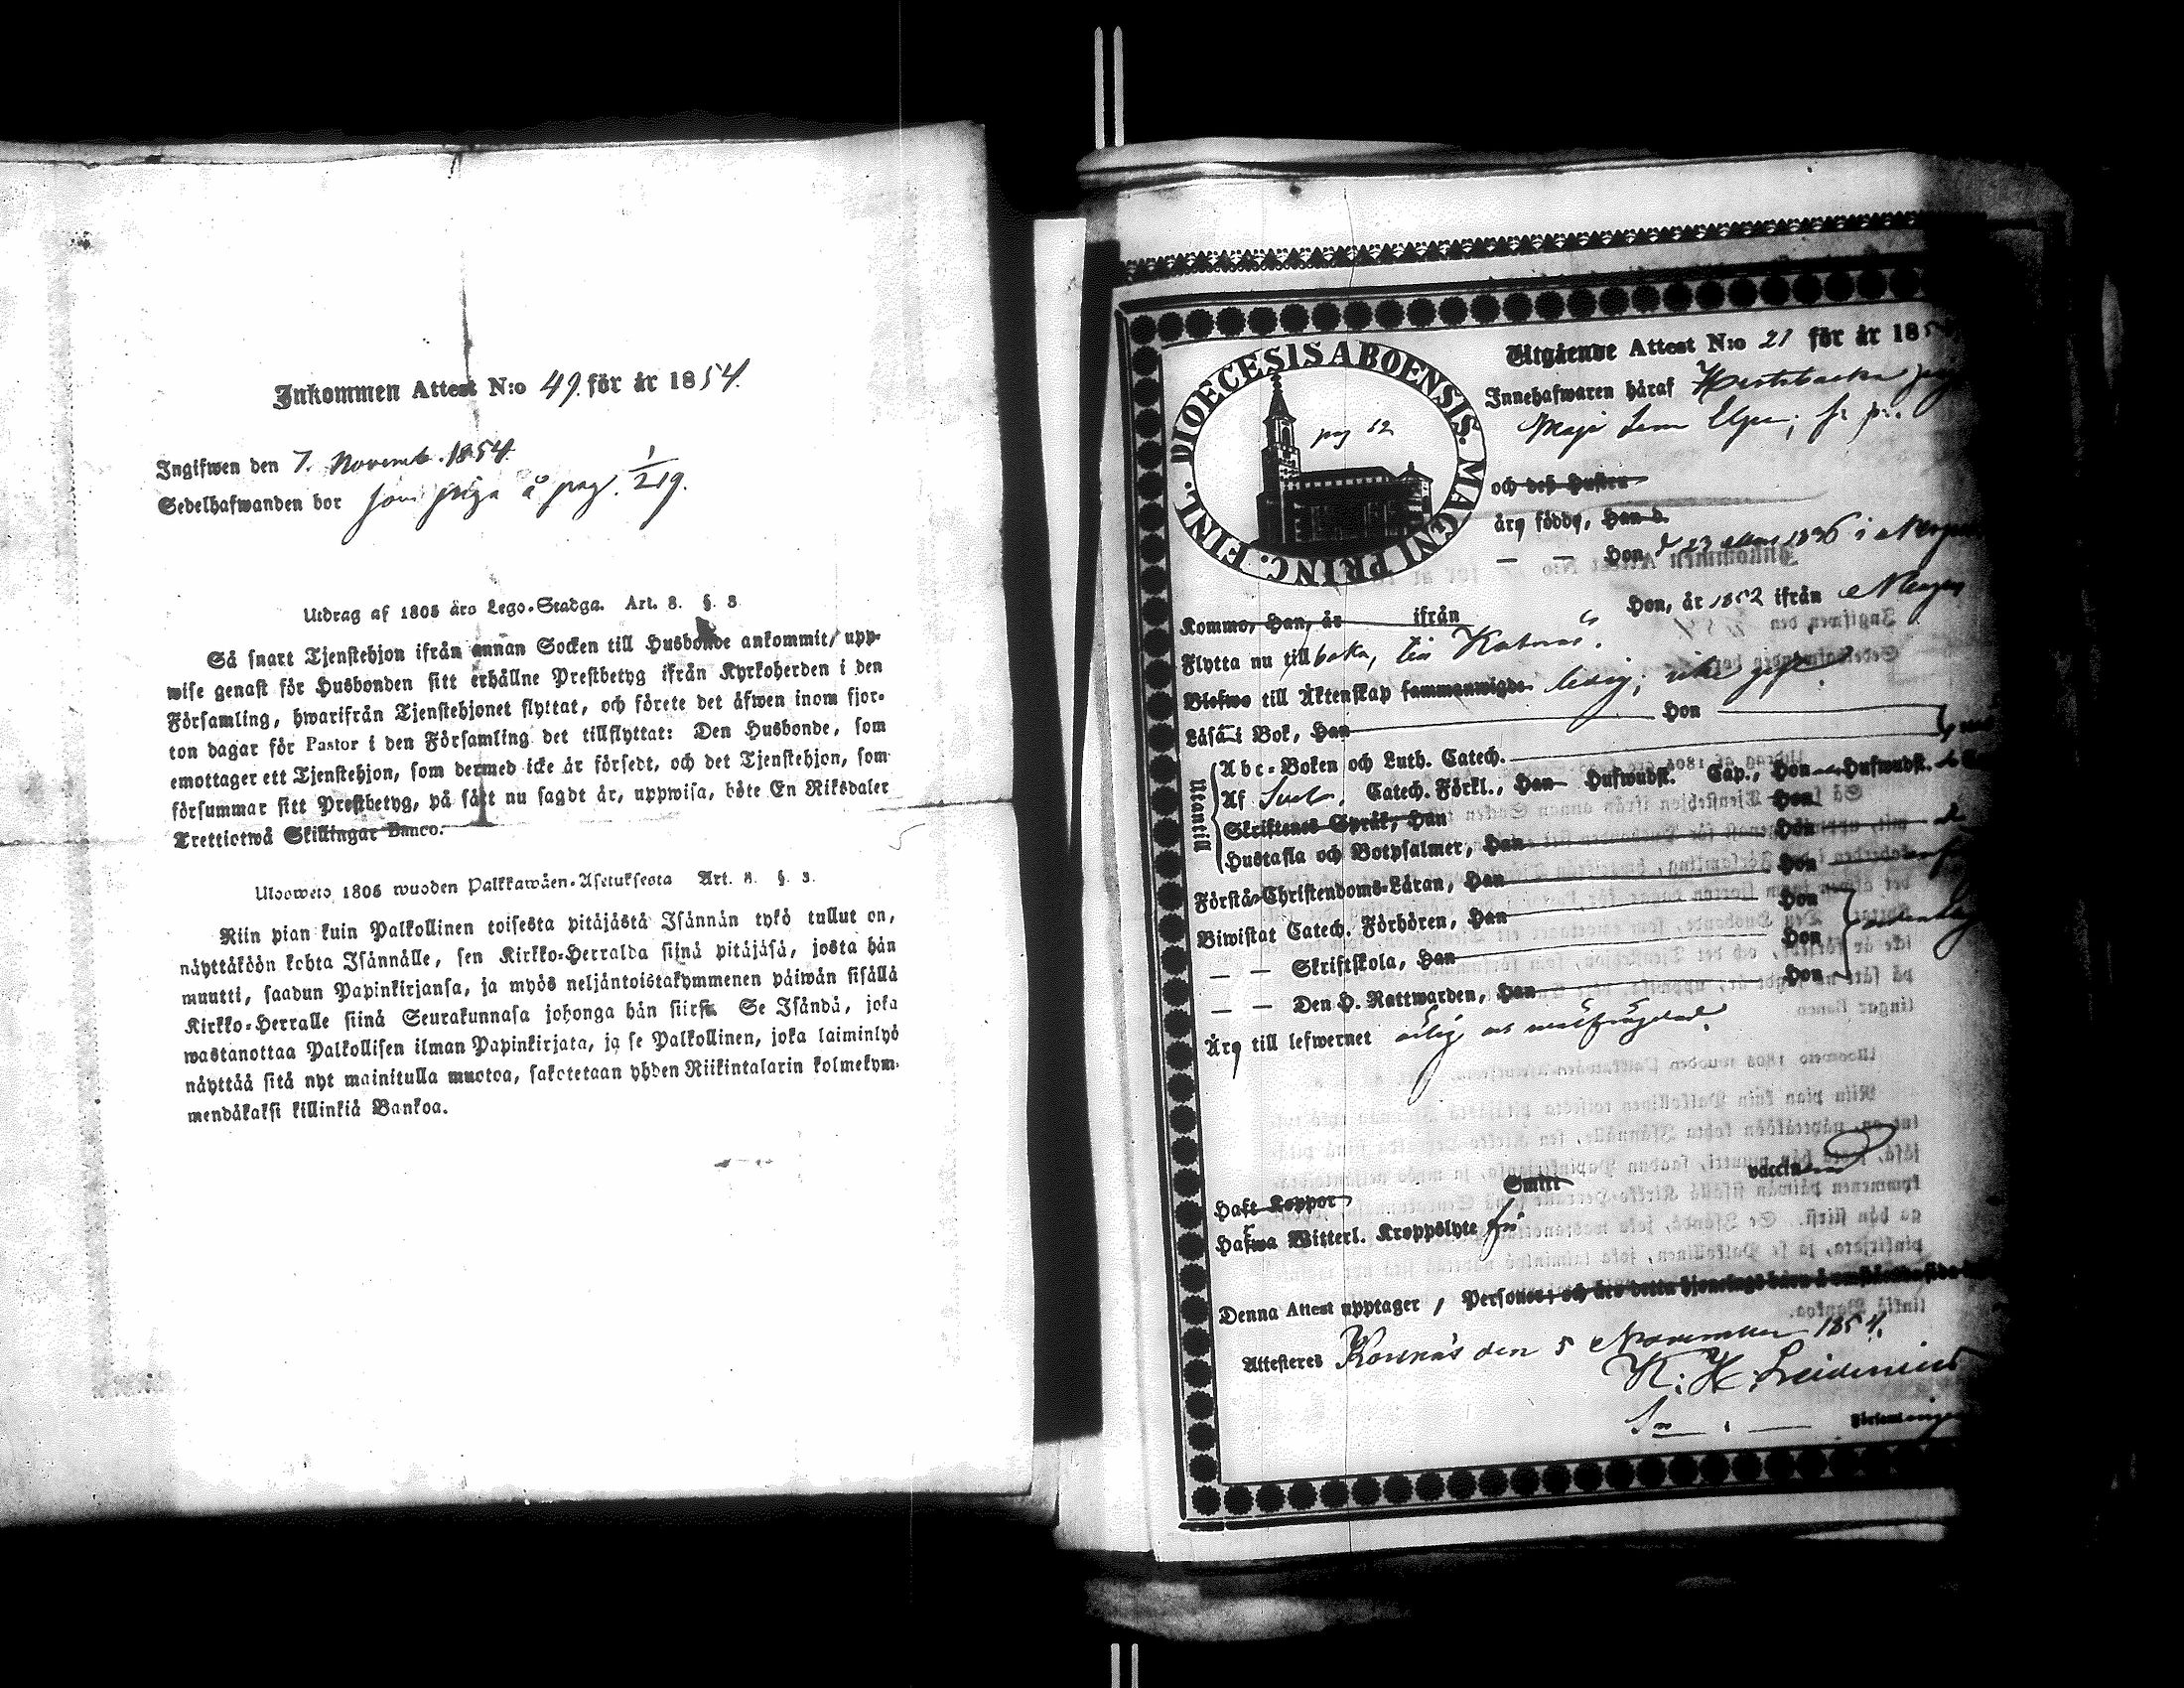 Inkommen Attest N:o 49. för år 1854.
Ingifwen den 7. Novemb. 1854.
Sedelhafwanden bor som piga å pag. 1/219.
Utdrag af 1805 års Lego-Stadga. Art. 8. §. 3
Så snart Tjenstehjon ifrån annan Socken till Husbonde ankommit, upp-
wise genast för Husbonden sitt erhållne Prestbetyg ifrån Kyrkoherden i den
Församling, hwarifrån Tjenstehjonet flyttat, och förete det äfwen inom fjor-
ton dagar för Pastor i den Församling det tillflyttat: Den Husbonde, som
emottager ett Tjenstehjon, som dermed icke är försedt, och det Tjenstehjon, som
försummar sitt Prestbetyg, på sätt nu sagdt är, uppwisa, böte En Riksdaler
Trettiotwå Skillingar Banco.
Ulosweto 1805 wuoden Palkkawäen-Asetuksesta Art. 8. §. 3.
Niin pian kuin Palkollinen toisesta pitäjästä Isännän tykö tullut on,
näyttäköön kohta Isännälle, sen Kirkko-Herralda siinä pitäjäsä, josta hän
muutti, saadun Papinkirjansa, ja myös neljäntoistakymmenen päiwän sisällä
Kirkko-Herralle siinä Seurakunnasa johonga hän siirsi. Se Isändä, joka
wastanottaa Palkollisen ilman Papinkirjata, ja se Palkollinen, joka laiminlyö
näyttää sitä nyt mainitulla muotoa, sakotetaan yhden Riikintalarin kolmekym-
mendäkaksi killinkiä Bankoa.
DIOECESIS ABOENSIS. MAGNI PRINC. FINL.
pag 52
Utgående Attest N:o 21 för år 185
Innehafwaren häraf
Maja Lena
och deß Hustru
äro födde, Han d.
— — Hon d 23 1836 i
Kommo, Han, år ifrån Hon, år 1852 ifrån
Flytta nu tillbaka, till
Blefwo till Äktenskap sammanwigde ledig; icke gift.
Läsa i Bok, Han Hon
Utantill
Abc-Boken och Luth. Catech.
Af Catech. Förkl., Han Hufwudst. Cap., Hon Hufwudst.
Skriftenes Språk, Han Hon
Hustafla och Botpsalmer, Han Hon
Förstå Christendoms-Läran, Han Hon
Biwistat Catech. Förhören, Han Hon
— — Skriftskola, Han Hon
— — Den H. Nattwarden, Han Hon
Äro till lefwernet ärlig och
Haft Koppor Smitt vaccin
Hafwa Witterl. Kroppslyte fri
Denna Attest upptager 1 Personer; och äro detta hjonelags barn å omstående sida
Attesteres Korsnäs den 5 November 1854.
Församlingen